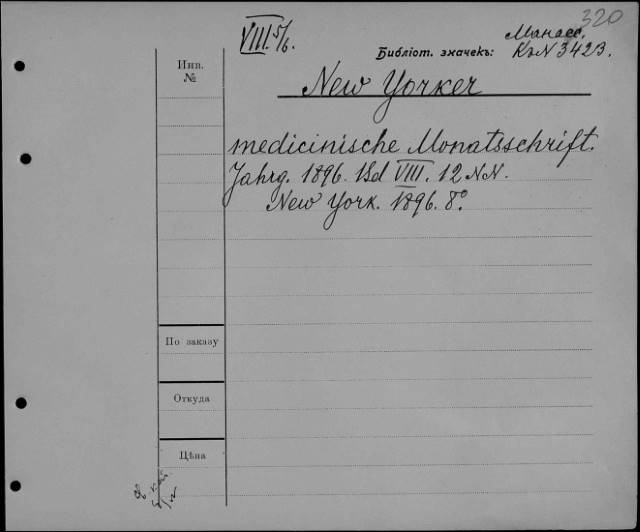 320
VIII. 5/6.
Манасс.
Инв.
№
Библіот. значекъ: К. N 3423.
New Yorker
medicinische Monatsschrift.
Jahrg. 1896. Bd VIII. 12 NN.
New York. 1896. 8°
По заказу
Откуда
Цѣна